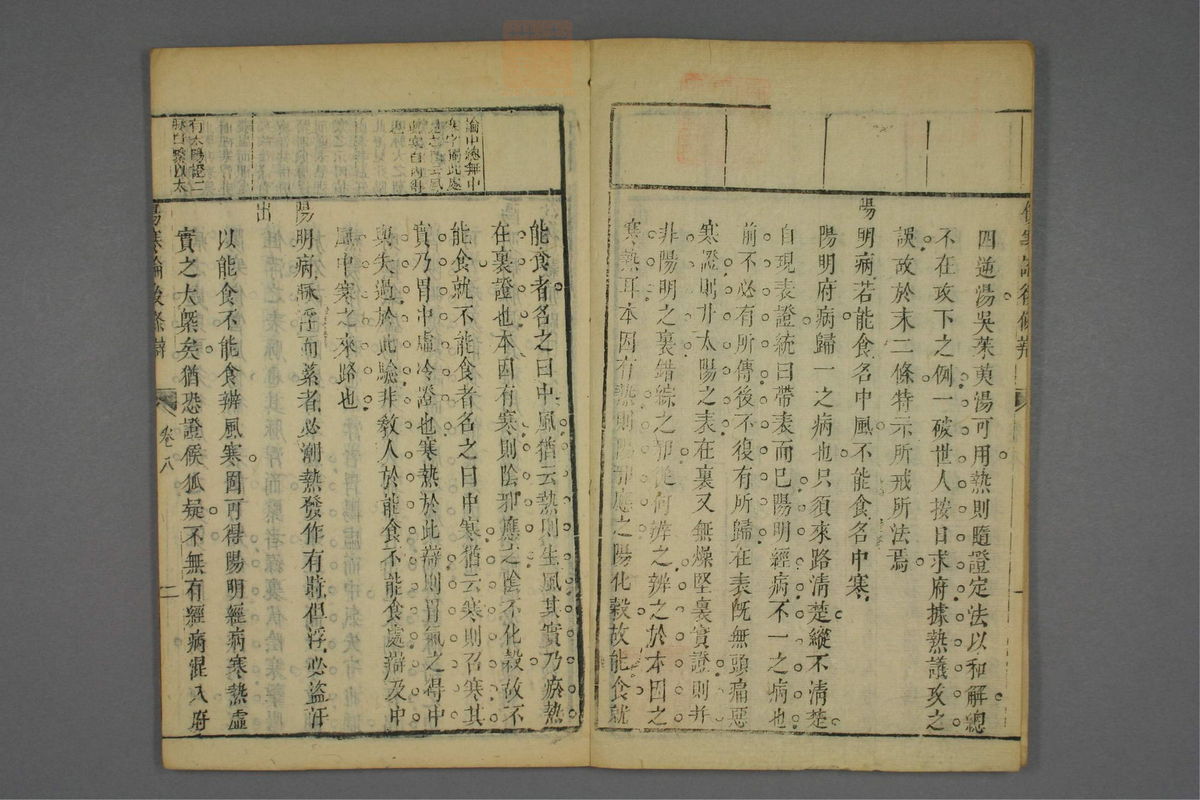 四逆湯吳茱萸湯可用熱則隨證定法以和解總
不在攻下之例一破世人按日求府據熱議攻之
誤故於末二條特示所戒所法焉
陽明病若能食名中風不能食名中寒
陽明府病歸一之病也只須來路清楚縱不清楚
自現表證統曰帶表而已陽明經病不一之病也
前不必有所傳後不復有所歸在表既無頭痛惡
寒證則非太陽之表在裏又無燥堅裏實證則非
非陽明之裏錯綜之邪從何辨之辨之於本因之
寒熱耳本因有熱則陽邪應之陽化穀故能食就
能食者名之曰中風猶云熱則生風其實乃瘀熱
在裏證也本因有寒則陰邪應之陰不化穀故不
能食就不能食者名之曰中寒猶云寒則召寒其
實乃胃中虛冷證也寒熱於此辯則胃氣之得中
與失過於此驗非教人於能食不能食處辯及中
風中寒之來路也
陽明病脈浮而緊者必潮熱發作有時但浮必盜汗
出
以能食不能食辨風寒固可得陽明經病寒熱虛
實之大槩矣猶恐證候狐疑不無有經病混入府
傷寒論後條辯
卷八
二
論中總無中
有太陽證二